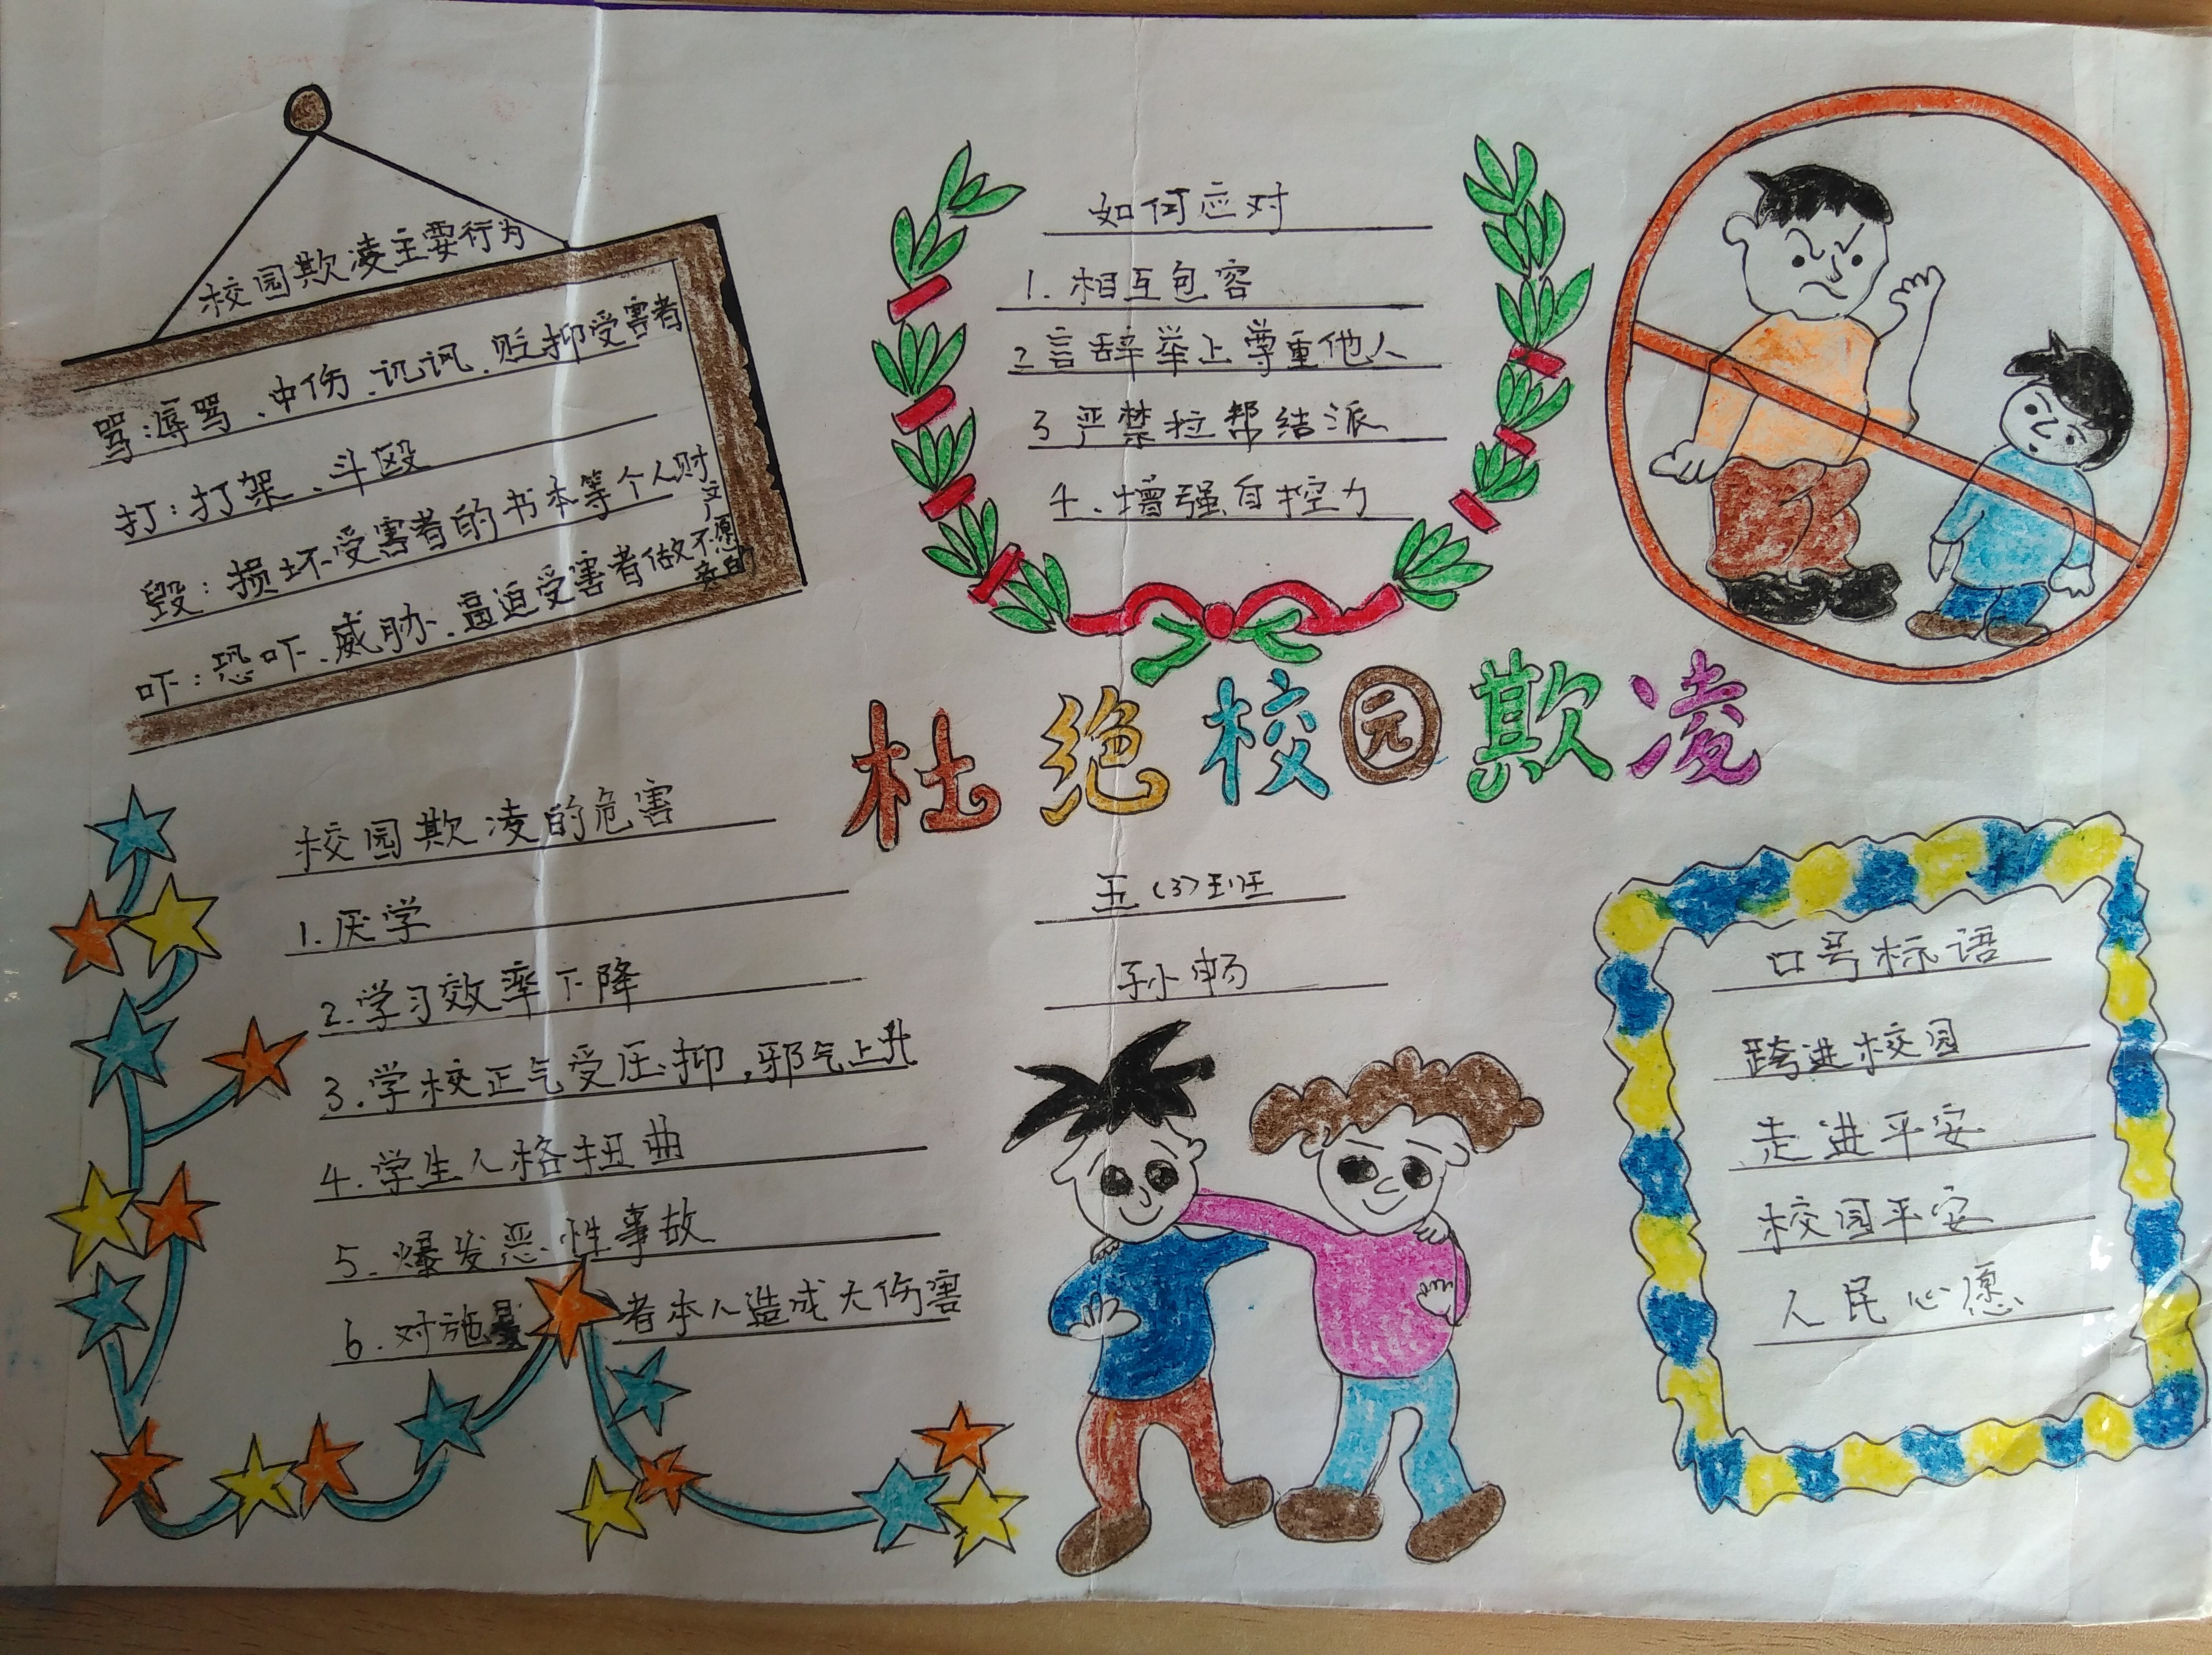 校园欺凌主要行为
骂:辱骂、中伤、讥讽、贬抑受害者
打:打架、斗殴
毁:损坏受害者的书本等个人财产
吓:恐吓、威胁、逼迫受害者做不愿
如何应对
1.相互包容
2言辞举止尊重他人
3严禁拉帮结派
4.增强自控力
杜绝校园欺凌
五(3)班
孙畅
校园欺凌的危害
1.厌学
2.学习效率下降
3.学校正气受压抑,邪气上升
4.学生人格扭曲
5.爆发恶性事故
6.对施暴者本人造成大伤害
口号标语
跨进校园
走进平安
校园平安
人民心愿